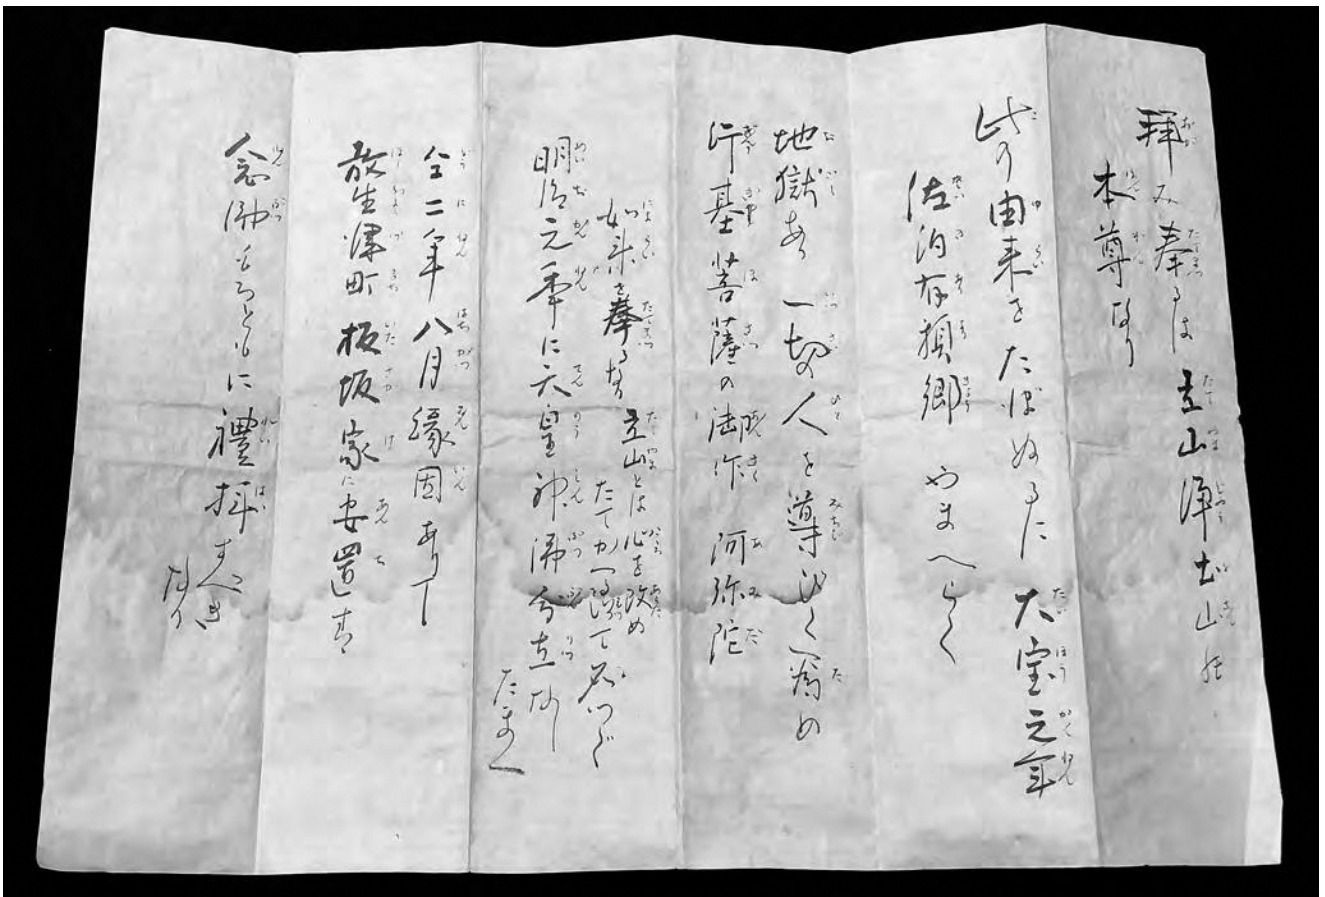 拝み奉るは 立山浄土山の
本尊なり
此の由来をたづぬるに 大宝元年
佐伯有頼郷 やまへらく
地獄あり 一切の人を導びく為め
行基菩薩の御作 阿弥陀
如来を奉る 立山とは心を改め
たてかへ
明治元年に天皇神佛分立なし
たまへ
仝二年八月縁因ありて
放生津町 板坂家に安置す
念佛もろともに禮拝すべき
なり